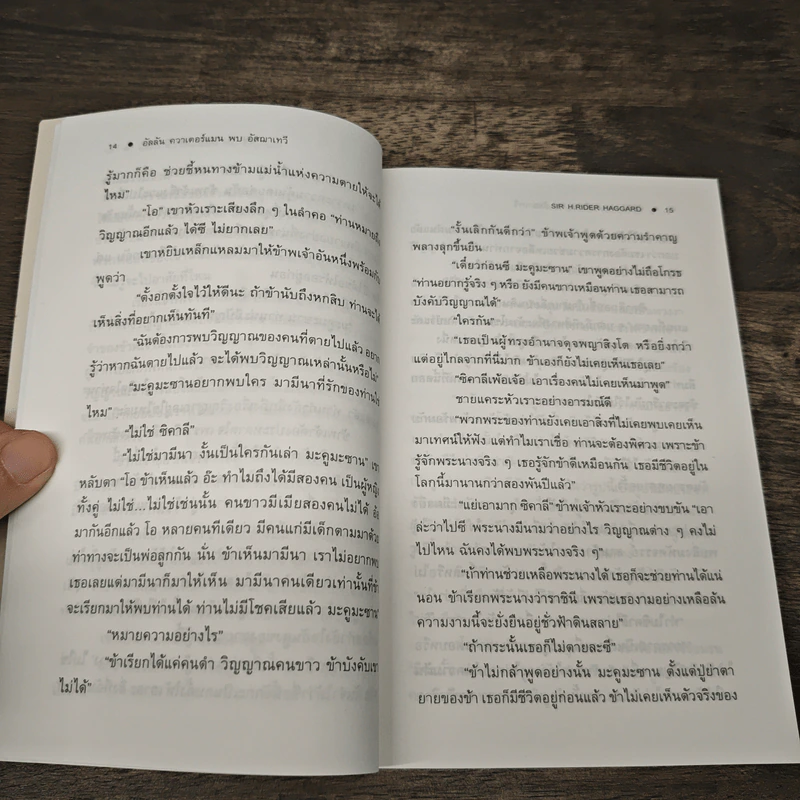 14 ● อัลลัน ควาเตอร์แมน พบ อัสฌาเทวี
รู้มากก็คือ ช่วยชี้หนทางข้ามแม่น้ำแห่งความตายให้จะได้
ไหม"
"โอ" เขาหัวเราะเสียงลึก ๆ ในลำคอ "ท่านหมายถึง
วิญญาณอีกแล้ว ได้ซี ไม่ยากเลย"
เขาหยิบเหล็กแหลมมาให้ข้าพเจ้าอันหนึ่งพร้อมกับ
พูดว่า
"ตั้งอกตั้งใจไว้ให้ดีนะ ถ้าข้านับถึงหกสิบ ท่านจะได้
เห็นสิ่งที่อยากเห็นทันที"
"ฉันต้องการพบวิญญาณของคนที่ตายไปแล้ว อยาก
รู้ว่าหากฉันตายไปแล้ว จะได้พบวิญญาณเหล่านั้นหรือไม่"
"มะคูมะซานอยากพบใคร มามีนาที่รักของท่านใช่
ไหม"
"ไม่ใช่ ซิคาลี"
"ไม่ใช่มามีนา งั้นเป็นใครกันเล่า มะคูมะซาน" เขา
หลับตา "โอ ข้าเห็นแล้ว อ๊ะ ทำไมถึงได้มีสองคน เป็นผู้หญิง
ทั้งคู่ ไม่ใช่...ไม่ใช่เช่นนั้น คนขาวมีเมียสองคนไม่ได้
มากันอีกแล้ว โอ หลายคนทีเดียว มีคนแก่มีเด็กตามมาด้วย
ท่าทางจะเป็นพ่อลูกกัน นั่น ข้าเห็นมามีนา เราไม่อยากพบ
เธอเลยแต่มามีนาก็มาให้เห็น มามีนาคนเดียวเท่านั้นที่ข้า
จะเรียกมาให้พบท่านได้ ท่านไม่มีโชคเสียแล้ว มะคูมะซาน"
"หมายความอย่างไร"
"ข้าเรียกได้แค่คนดำ วิญญาณคนขาว ข้าบังคับเขา
ไม่ได้"
SIR H.RIDER HAGGARD ● 15
"งั้นเลิกกันดีกว่า" ข้าพเจ้าพูดด้วยความรำคาญ
พลางลุกขึ้นยืน
"เดี๋ยวก่อนซี มะคูมะซาน" เขาพูดอย่างไม่ถือโกรธ
"ท่านอยากรู้จริง ๆ หรือ ยังมีคนขาวเหมือนท่าน เธอสามารถ
บังคับวิญญาณได้"
"ใครกัน"
"เธอเป็นผู้ทรงอำนาจดุจพญาสิงโต หรือยิ่งกว่า
แต่อยู่ไกลจากที่นี่มาก ข้าเองก็ยังไม่เคยเห็นเธอเลย"
"ซิคาลีเพ้อเจ้อ เอาเรื่องคนไม่เคยเห็นมาพูด"
ชายแคระหัวเราะอย่างอารมณ์ดี
"พวกพระของท่านยังเคยเอาสิ่งที่ไม่เคยพบเคยเห็น
มาเทศน์ให้ฟัง แต่ทำไมเราเชื่อ ท่านจะต้องพิศวง เพราะข้า
รู้จักพระนางจริง ๆ เธอรู้จักข้าดีเหมือนกัน เธอมีชีวิตอยู่ใน
โลกนี้มานานกว่าสองพันปีแล้ว"
"แย่เอามาก ซิคาลี" ข้าพเจ้าหัวเราะอย่างขบขัน "เอา
ล่ะว่าไปซี พระนางมีนามว่าอย่างไร วิญญาณต่าง ๆ คงไม่
ไปไหน ฉันคงได้พบพระนางจริง ๆ"
"ถ้าท่านช่วยเหลือพระนางได้ เธอก็จะช่วยท่านได้แน่
นอน ข้าเรียกพระนางว่าราชินี เพราะเธองามอย่างเหลือล้น
ความงามนี้จะยั่งยืนอยู่ชั่วฟ้าดินสลาย"
"ถ้ากระนั้นเธอก็ไม่ตายละซี"
"ข้าไม่กล้าพูดอย่างนั้น มะคูมะซาน ตั้งแต่ปู่ย่าตา
ยายของข้า เธอก็มีชีวิตอยู่ก่อนแล้ว ข้าไม่เคยเห็นตัวจริงของ